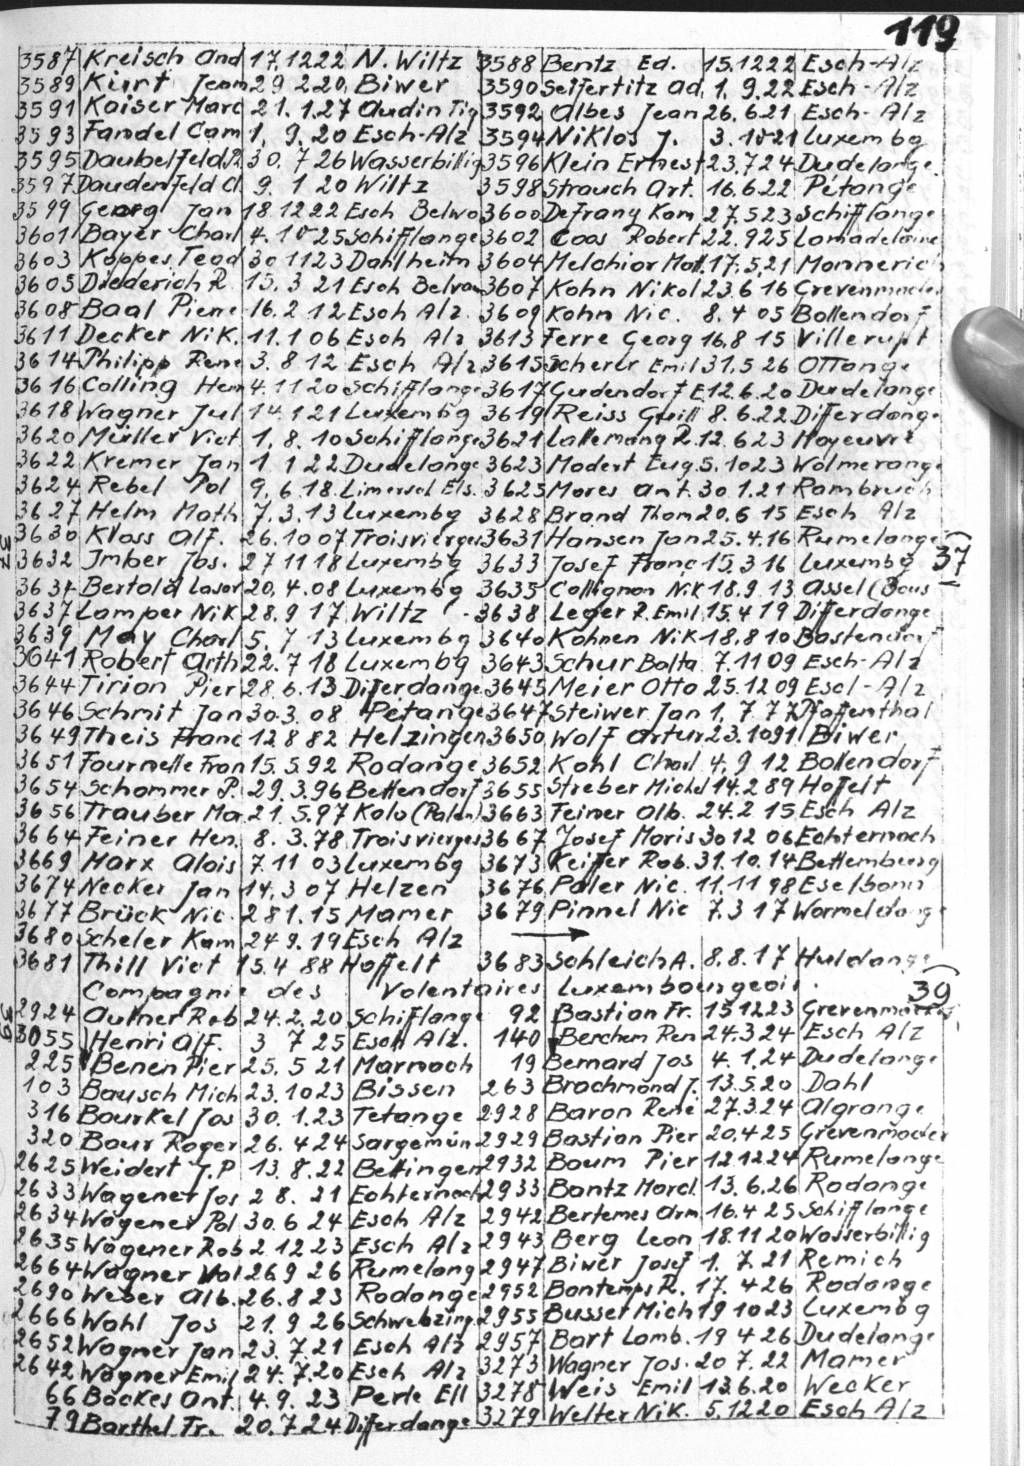 119
3587 Kreisch And 17.1222 N. Wiltz 3588 Bentz Ed. 15.1222 Esch-Alz
3589 Kiirt Jean 29 2.20 Biwer 3590 Seiffertitz Ad. 1. 9.22 Esch-Alz
3591 Kaiser Marc 21. 1.27 Audin Tig 3592 Albes Jean 26.6.21 Esch-Alz
3593 Fandel Cam 1. 9.20 Esch-Alz 3594 Niklos J. 3. 10 21 Luxembg
3595 Daubelfeld R. 30. 7 26 Wasserbillig 3596 Klein Ernest 23.7.24 Dudelange
3597 Daudenfeld Cl. 9. 1 20 Wiltz 3598 Strauch Art. 16.6.22 Pétange
3599 Georg Jan 18.1222 Esch Belva 3600 Defrang Kam 27.523 Schifflange
3601 Bayer Charl 4. 10 25 Schifflange 3602 Coos Robert 22. 925 Lamadelaine
3603 Koppes Teod 30 1123 Dahlheim 3604 Melchior Mat. 17.5.21 Monnerich
3605 Diederich R. 15. 3 21 Esch Belva 3607 Kohn Nikol 23.6 16 Grevenmacher
3608 Baal Piene 16. 2 12 Esch Alz. 3609 Kohn Nic. 8. 4 05 Bollendorf
3611 Decker Nik. 11.1 06 Esch Alz 3613 Ferre Georg 16.8 15 Villerupt
3614 Philipp Rene 3. 8 12 Esch Alz. 3615 Scherer Emil 31.5 26 Ottange
3616 Colling Hen 4. 11 20 Schifflange 3617 Gudendorf E 12.6.20 Dudelange
3618 Wagner Jul 14.1.21 Luxembg 3619 Reiss Guill 8.6.22 Differdange
3620 Müller Vict 1. 8. 10 Schifflange 3621 Lallemang R. 12. 6 23 Moyeuvre
3622 Kremer Jan 1 1 22 Dudelange 3623 Modert Eug. 5. 1023 Wolmerange
3624 Rebel Pol 9. 6.18. Limersch Els. 3625 Mores Ant. 30.1.21 Rambruch
3627 Helm Math 7. 3.13 Luxembg 3628 Brand Thom 20.6 15 Esch Alz
3630 Klass Alf. 26.10 07 Troisvierges 3631 Hansen Jan 25.4.16 Rumelange 37
3632 Imber Jos. 27 11 18 Luxembg 3633 Josef Franc 15.3 16 Luxembg
3634 Bertold Lasar 20. 4.08 Luxembg 3635 Collignon Nik 18.9. 13 Assel (Bous
3637 Lamper Nik 28.9 17 Wiltz 3638 Leger R. Emil 15.4 19 Differdange
3639 May Charl 5. 7 13 Luxembg 3640 Kohnen Nik 18.8 10 Bastendorf
3641 Robert Arth 22.7 18 Luxembg 3643 Schur Balta 7.11 09 Esch-Alz
3644 Tirion Pier 28.6.13 Differdange 3645 Meier Otto 25.12 09 Escl-Alz
3646 Schmit Jan 30.3. 08 Petange 3647 Steiwer Jan 1. 7 77 Pfaffenthal
3649 Theis Franc 12 8 82 Helzingen 3650 Wolf Artur 23.1091 Biwer
3651 Fournelle Fran 15.5.92 Rodange 3652 Kohl Charl 4. 9 12 Bollendorf
3654 Schommer P. 29.3.96 Bettendorf 3655 Streber Michel 14.2.89 Hoffelt
3656 Trauber Mar 21. 5.97 Kolo (Polen) 3663 Feiner Alb. 24.2 15 Esch Alz
3664 Feiner Hen. 8. 3.78 Troisvierges 3667 Josef Moris 30 12 06 Echternach
3669 Marx Alois 7.11 03 Luxembg 3673 Keiffer Rob. 31.10.14 Bettemburg
3674 Necker Jan 14.3 07 Helzen 3676 Paler Nic. 11.11 98 Eselborn
3677 Brück Nic. 281.15 Mamer 3679 Pinnel Nic 7.3 17 Wormeldange
3680 Scheler Kam 24 9. 19 Esch Alz
3681 Thill Vict 15.4 88 Hoffelt 3683 Schleich A. 8.8.17 Huldange
Compagnie des Volentaires Luxembourgeois. 39
2924 Aulner Rob 24.2.20 Schifflange 92 Bastian Fr. 15 1223 Grevenmacher
3055 Henri Alf. 3 7 25 Esch Alz. 140 Berchem Ren 24.3.24 Esch Alz
225 Benen Pier 25. 5 21 Marnach 19 Bernard Jos 4. 1.24 Dudelange
103 Bausch Mich 23.1023 Bissen 263 Brachmond J. 13.5.20 Dahl
316 Bourkel Jos 30. 1.23 Tetange 2928 Baron René 27.3.24 Algrange
320 Bour Roger 26. 4 24 Sargemün 2929 Bastian Pier 20.4 25 Grevenmacher
2625 Weidert J.P 13. 8.22 Bettingen 2932 Baum Pier 12.1224 Rumelange
2633 Wagener Jos 2 8. 21 Echternach 2933 Bantz Marcl. 13. 6.26 Rodange
2634 Wagener Pol 30.6 24 Esch Alz 2942 Bertemes Arm 16.4 25 Schifflange
2635 Wagener Rob 2. 12.23 Esch Alz 2943 Berg Leon 18.11 20 Wasserbillig
2664 Wagner Val 26.9 26 Rumelang 2947 Biwer Josef 1. 7. 21 Remich
2690 Weber Alb. 26.8 23 Rodange 2952 Bontemps R. 17. 4 26 Rodange
2666 Wahl Jos 21. 9 26 Schwebzing. 2955 Busset Mich 19 1023 Luxembg
2652 Wagner Jan 23. 7.21 Esch Alz 2957 Bart Lamb. 19 4 26 Dudelange
2642 Wagner Emil 24.7.20 Esch Alz 3273 Wagner Jos. 20 7. 22 Mamer
66 Backes Ant. 4. 9. 23 Perle Ell 3278 Weis Emil 13.6.20 Wecker
79 Barthel Fr. 20.7 24 Differdange 3279 Welter Nik. 5.1220 Esch Alz